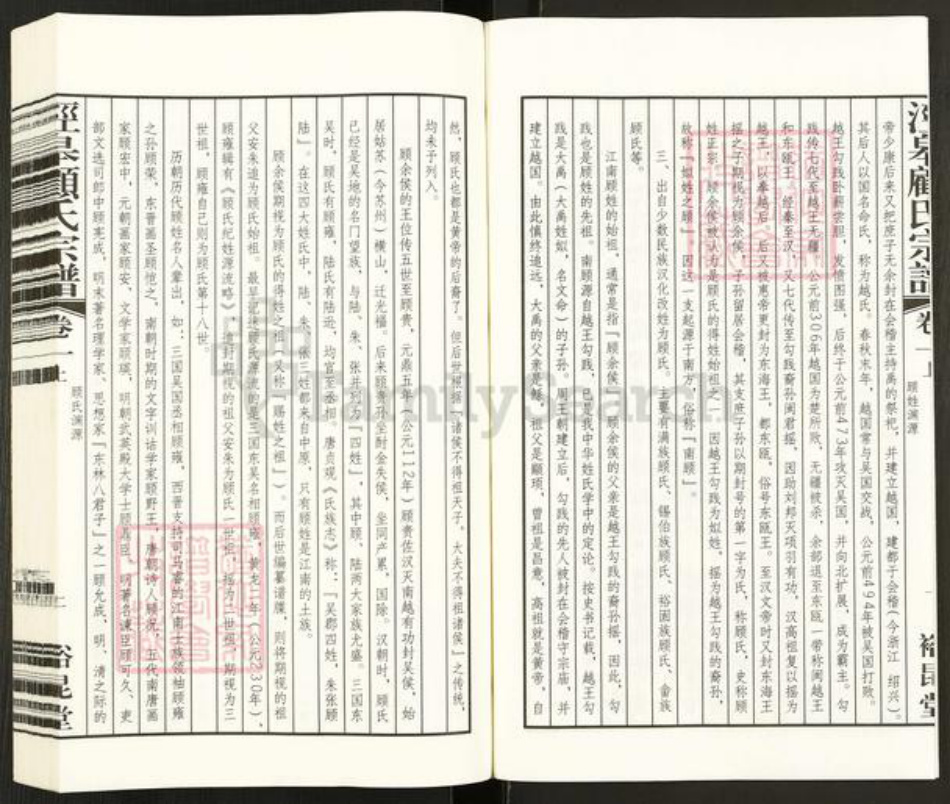 帝少康后来又把庶子无余封在会稽主持禹的祭祀，并建立越国，建都于会稽（今浙江 绍兴）。
其后人以国名命氏，称为越氏。春秋末年，越国常与吴国交战，公元前494年被吴国打败。
越王勾践卧薪尝胆，发愤图强，后终于公元前473年攻灭吴国，并向北扩展，成为霸主。勾
践传七代至越王无疆，公元前306年越国为楚所败，无疆被杀，余部退至东瓯一带称闽越王
和东瓯王，经秦至汉，又七代传至勾践裔孙闽君摇，因助刘邦灭项羽有功，汉高祖复以摇为
越王，以奉越后，后又被惠帝更封为东海王，都东瓯，俗号东瓯王。至汉文帝时又封东海王
摇之子期视为顾余侯，子孙留居会稽，其支庶子孙以期封号的第一字为氏，称顾氏，史称顾
姓正宗。顾余侯被认为是顾氏的得姓始祖之一，因越王勾践为姒姓，摇为越王勾践的裔孙，
故称“姒姓之顾”，因这一支起源于南方，俗称“南顾”。
三、出自少数民族汉化改姓为顾氏，主要有满族顾氏、锡伯族顾氏、裕固族顾氏、畲族
顾氏等。
江南顾姓的始祖，通常是指“顾余侯”，顾余侯的父亲是越王勾践的裔孙摇，因此，勾
践也是顾姓的先祖。南顾源自越王勾践，已是我中华姓氏学中的定论。按史书记载，越王勾
践是大禹（大禹姓姒，名文命）的子孙。周王朝建立后，勾践的先人被封在会稽守宗庙，并
建立越国。由此慎终追远，大禹的父亲是鲧，祖父是颛顼，曾祖是昌意，高祖就是黄帝，自
泾皋顾氏宗谱
卷一上
顾姓渊源
一
裕昆堂
然，顾氏也都是黄帝的后裔了。但后世根据“诸侯不得祖天子，大夫不得祖诸侯”之传统，
均未予列入。
顾余侯的王位传五世至顾贵，元鼎五年（公元112年）顾贵佐汉灭南越有功封吴侯，始
居姑苏（今苏州）横山，迁光福。后来顾贵孙坐酎金失侯，坐同产累，国除。汉朝时，顾氏
已经是吴地的名门望族，与陆、朱、张并列为“四姓”，其中顾、陆两大家族尤盛。三国东
吴时，顾氏有顾雍，陆氏有陆逊，均官至丞相。唐贞观《氏族志》称：“吴郡四姓，朱张顾
陆”。在这四大姓氏中，陆、朱、张三姓都来自中原，只有顾姓是江南的土族。
顾余侯期视为顾氏的得姓之祖（又称“赐姓之祖”）。而后世编纂谱牒，则将期视的祖
父安朱追为顾氏始祖。最早记述顾氏源流的是三国东吴名相顾雍，黄龙二年（公元230年），
顾雍辑有《顾氏纪姓源流略》，追封期视的祖父安朱为顾氏一世祖，摇为二世祖，期视为三
世祖，顾雍自己则为顾氏第十八世。
历朝历代顾姓名人辈出，如：三国吴国丞相顾雍，西晋支持司马睿的江南士族领袖顾雍
之孙顾荣，东晋画圣顾恺之，南朝时期的文字训诂学家顾野王，唐朝诗人顾况，五代南唐画
家顾宏中，元朝画家顾安，文学家顾瑛，明朝武英殿大学士顾鼎臣，明著名谏臣顾可久，吏
部文选司郎中顾宪成，明末著名理学家、思想家“东林八君子”之一顾允成，明、清之际的
泾皋顾氏宗谱
卷一上
顾氏渊源
二
裕昆堂
FamilySearch